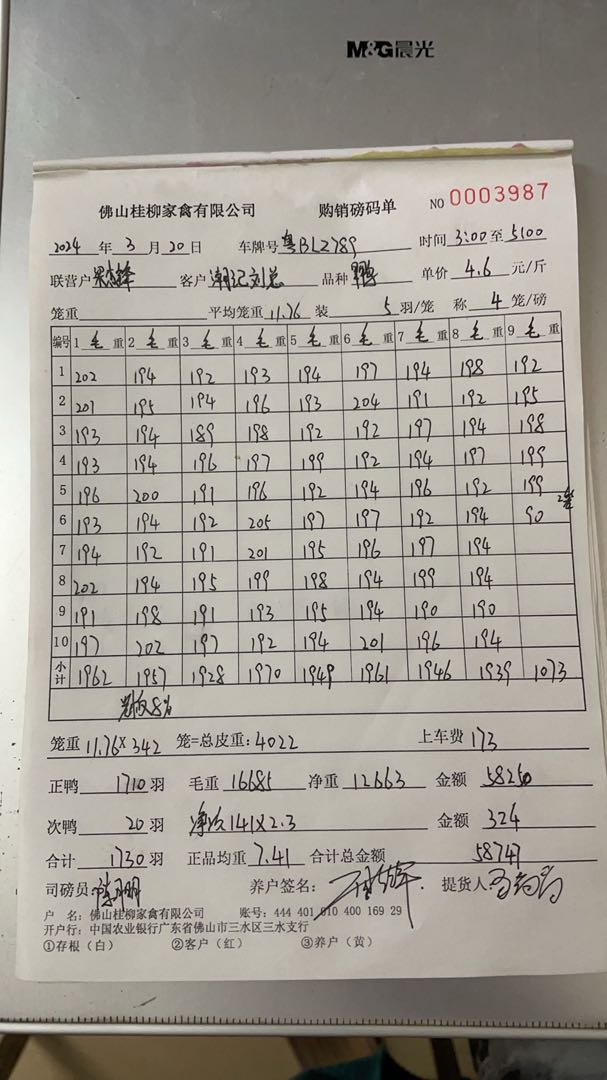 M&G晨光
佛山桂柳家禽有限公司 购销磅码单 NO 0003987
2024 年 3 月 20 日 车牌号 粤BL2789 时间 3:00 至 5:00
联营户 客户 潮记刘总 品种 单价 4.6 元/斤
笼重 平均笼重 11.76 装 5 羽/笼 称 4 笼/磅
编号 1 毛 重 2 毛 重 3 毛 重 4 毛 重 5 毛 重 6 毛 重 7 毛 重 8 毛 重 9 毛 重
1 202 194 192 193 194 197 194 198 192
2 201 195 194 196 193 204 191 192 195
3 193 194 189 198 192 192 197 194 198
4 193 194 196 197 199 192 194 197 199
5 196 200 191 196 192 194 196 192 199
6 193 194 192 205 197 197 192 194 90 2笼
7 194 192 191 201 195 196 197 194
8 202 194 195 199 198 194 199 194
9 191 198 191 193 195 194 190 190
10 197 202 197 192 194 201 196 194
小计 1962 1957 1928 1970 1949 1961 1946 1939 1073
8%
笼重 11.76 × 342 笼=总皮重: 4022 上车费 173
正鸭 1710 羽 毛重 16685 净重 12663 金额 58250
次鸭 20 羽 净次141×2.3 金额 324
合计 1730 羽 正品均重 7.41 合计总金额 58747
司磅员: 养户签名: 提货人:
户 名: 佛山桂柳家禽有限公司 账号: 444 401 010 400 169 29
开户行: 中国农业银行广东省佛山市三水区三水支行
①存根（白） ②客户（红） ③养户（黄）